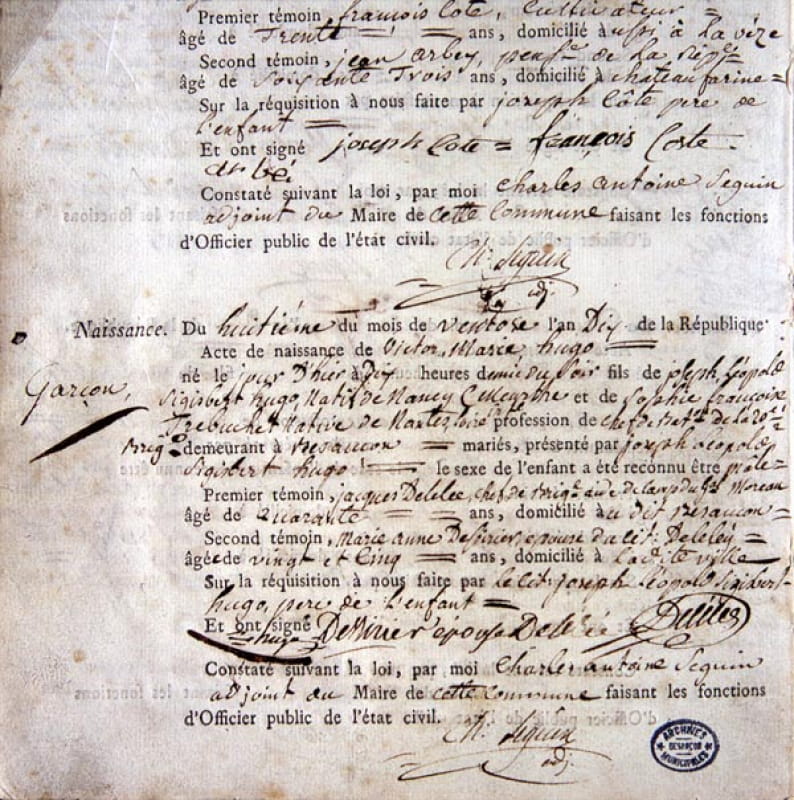 Premier témoin, françois Cote, Cultivateur =
âgé de Trente = ans, domicilié aussi à la vèze
Second témoin, jean arbey, pens.re de la Rép.
âgé de Soixante Trois ans, domicilié à châteaufarine =
Sur la réquisition à nous faite par joseph Côte pere de
l'enfant =
Et ont signé joseph Cote = françois Coste
arbéi
Constaté suivant la loi, par moi Charles antoine Seguin
adjoint du Maire de cette Commune faisant les fonctions
d'Officier public de l'état civil.
Ch. Seguin
adj.
Naissance. Du huitiéme du mois de Ventose l'an Dix de la République
Acte de naissance de Victor, Marie hugo =
Garçon,
né le jour D'hier à Dix heures demie du Soir fils de joseph Léopold
Sigisbert hugo, Natif de Nancy (Meurthe et de Sophie françoise
Trebuchet Native de Nantes profession de chef de Bat.on de la 20e
Brig.e demeurant à Besancon = mariés, présenté par joseph Leopold
Sigisbert hugo = le sexe de l'enfant a été reconnu être mâle =
Premier témoin, jacques Delelee, chef de brig.e aide de camp du G.al Moreau
âgé de Quarante = ans, domicilié au dit Besancon =
Second témoin, Marie anne Dessirier epouse du Cit: Deleley =
âgée de vingt et Cinq = ans, domicilié à la d.ite ville
Sur la réquisition à nous faite par le Cit: joseph Léopold Sigisbert
hugo, pere de l'enfant =
Et ont signé
= hugo Dessirier épouse Delelée Delelee
Constaté suivant la loi, par moi Charles antoine Seguin
adjoint du Maire de cette Commune faisant les fonctions
d'Officier public de l'état civil.
Ch. Seguin
adj.
ARCHIVES
BESANÇON
MUNICIPALES